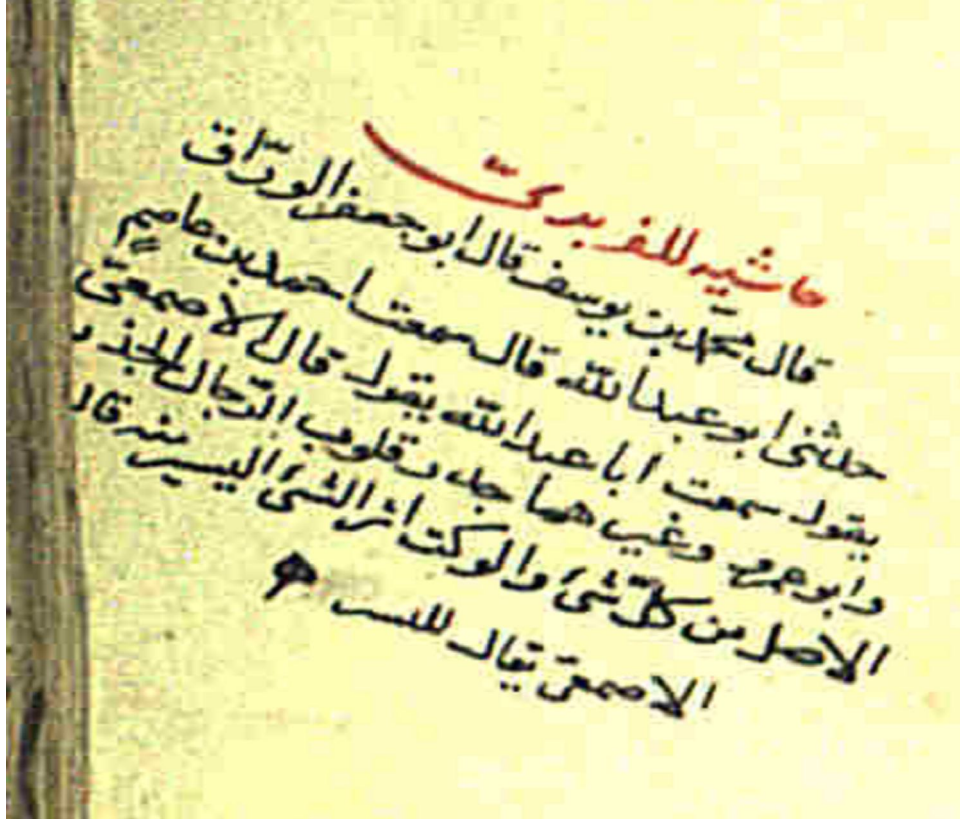 حاشيه للفربري
قال محمّد بن يوسف قال ابو جعفر الورّاق
حدثنى ابو عبد الله قال سمعت احمد بن عاصم
يقول سمعت ابا عبد الله يقول قال الاصمعىّ
وابو عمرو وغيرهما جذر قلوب الرّجال الجذر
الاصل من كلّ شئ والوكت اثر الشئ اليسير منه قال
الاصمعىّ يقال للبسر